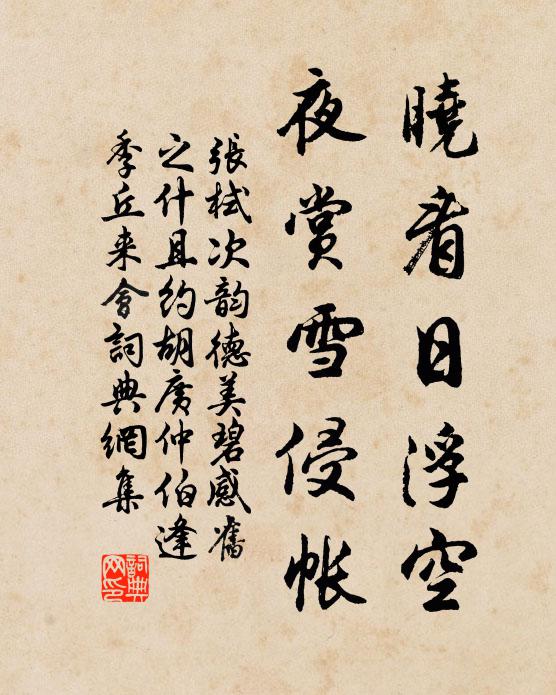 曉看日浮空
夜賞雪侵帳
張栻次韵德美碧感舊
之什且約胡廣仲伯逢
季丘来會詞典網集
詞典网印